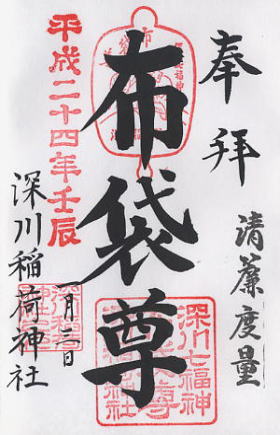 奉拝
清廉度量
布袋尊
平成二十四年壬辰
一月二日
深川稲荷神社
深川七福神